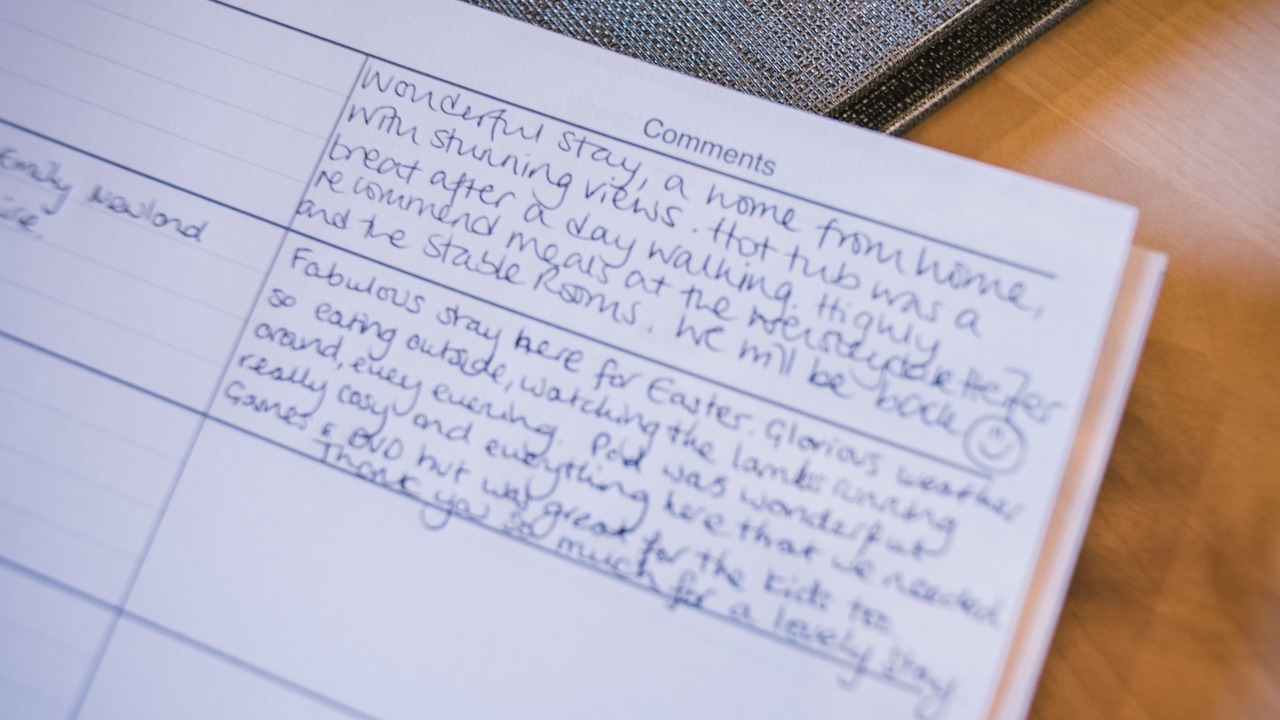 Comments
Wonderful stay, a home from home,
with stunning views. Hot tub was a
breat after a day walking. Highly
recommend meals at the
and the Stable Rooms. We will be back
Fabulous stay here for Easter. Glorious weather
so eating outside, watching the lambs running
around, every evening. Pod was wonderful
really cosy and everything here that we needed
Games & DVD hut was great for the kids too
Thank you so much for a lovely stay!
Emily Newland